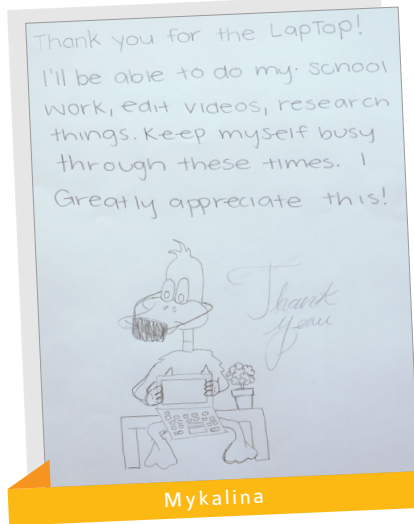 Thank you for the LapTop!
I'll be able to do my school
work, edit videos, research
things. Keep myself busy
through these times. I
Greatly appreciate this!
Thank
you
Mykalina